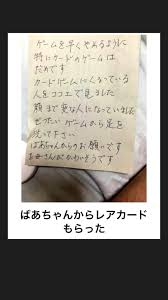 ゲームを早くやめるように
特にカードのゲームは
だめです
カードゲームにくるっている
人をココエで見ました
頭まで変な人になっていました
ぜったいゲームから足を
洗って下さい
ばあちゃんからのお願いです
お母さんがかわいそうです
ばあちゃんからレアカード
もらった